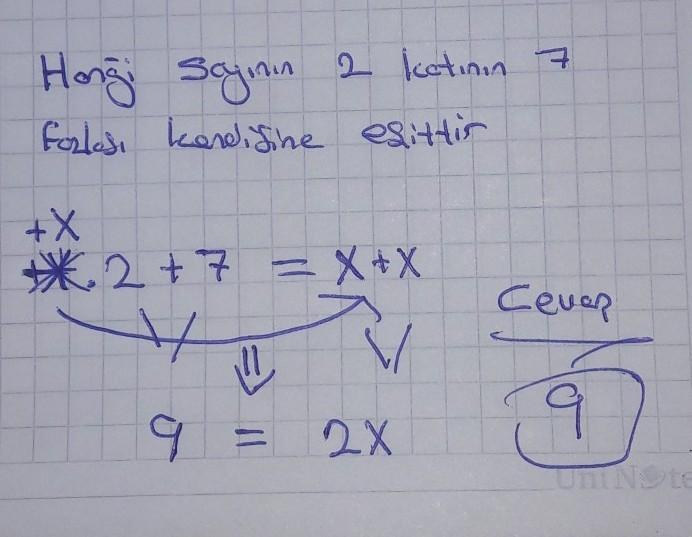 Hangi sayının 2 katının 7
fazlası kendisine eşittir
+X
. 2 + 7 = X + X
Cevap
9 = 2X
9
UniNote